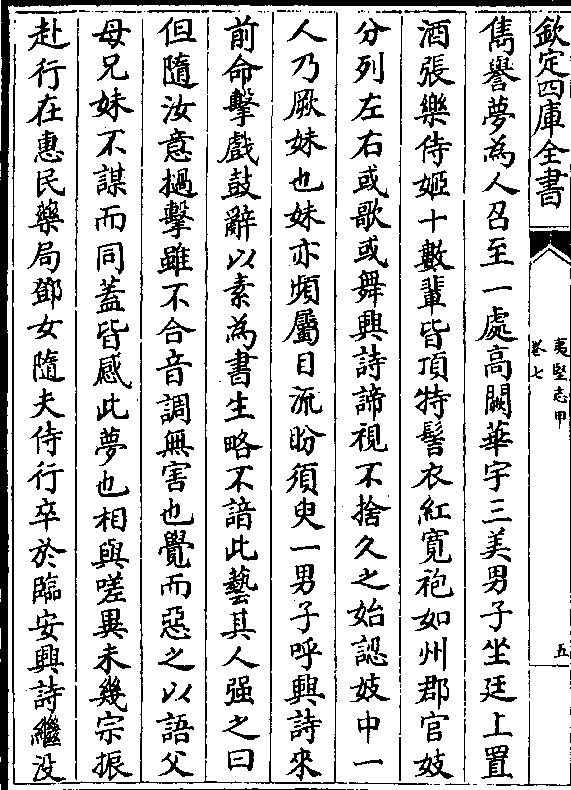 欽定四庫全書
夷堅志甲
卷七
五
雋譽夢為人召至一處高闕華宇三美男子坐廷上置
酒張樂侍姬十數輩皆頂特髻衣紅寬袍如州郡官妓
分列左右或歌或舞興詩諦視不捨久之始認妓中一
人乃厥妹也妹亦頻屬目流盼須臾一男子呼興詩來
前命擊戲鼓辭以素為書生略不諳此藝其人强之曰
但隨汝意撾擊雖不合音調無害也覺而惡之以語父
母兄妹不謀而同蓋皆感此夢也相與嗟異未幾宗振
赴行在惠民藥局鄧女隨夫侍行卒於臨安興詩繼没